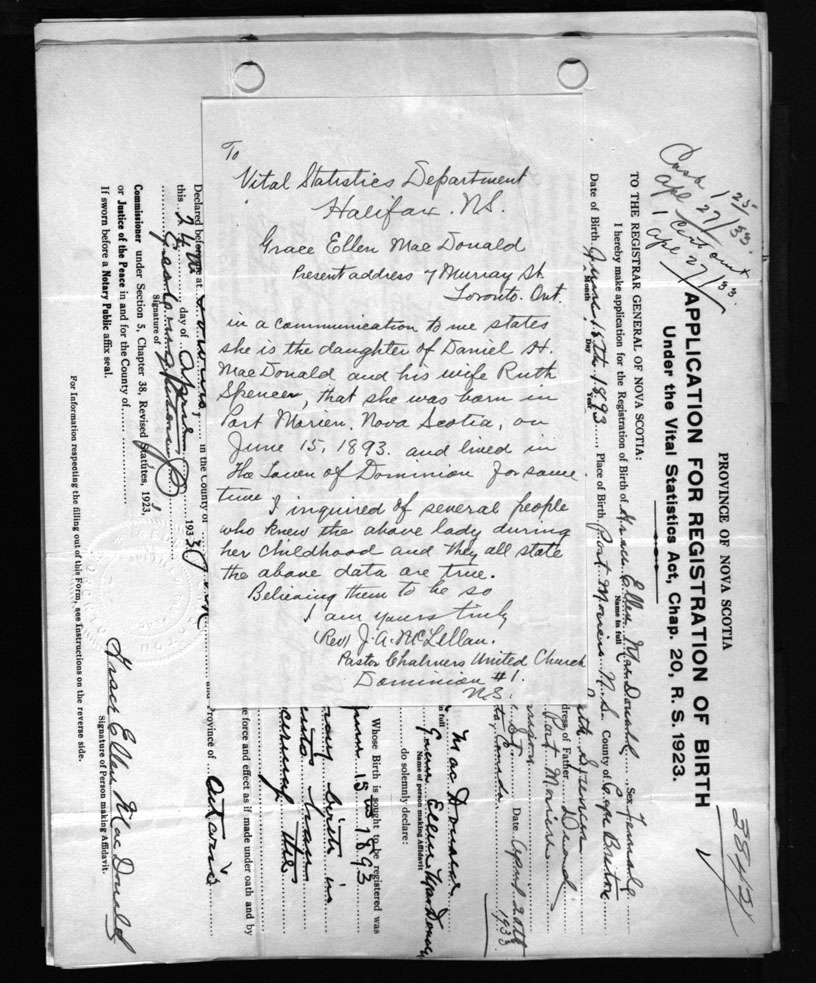 To
Vital Statistics Department
Halifax. N.S.
Grace Ellen MacDonald
Present address 7 Murray St.
Toronto. Ont.
in a communication to me states
she is the daughter of Daniel H.
MacDonald and his wife Ruth
Spencer, that she was born in
Port Morien, Nova Scotia, on
June 15, 1893. and lived in
the Town of Dominion for some
time
I inquired of several people
who knew the above lady during
her childhood and they all state
the above data are true.
Believing them to be so
I am yours truly
(Rev) J. A. McLellan.
Pastor Chalmers United Church
Dominion #1.
N.S.
Cash 1 25/
apl 27/33.
1 Cert out
apl 27/33.
PROVINCE OF NOVA SCOTIA
APPLICATION FOR REGISTRATION OF BIRTH
Under the Vital Statistics Act, Chap. 20, R. S. 1923.
TO THE REGISTRAR GENERAL OF NOVA SCOTIA:
I hereby make application for the Registration of Birth of Grace Ellen MacDonald Sex Female
Name in full
Date of Birth June 15th 1893 Place of Birth Port Morien N.S. County of Cape Breton
Month Day Year
Spencer
dress of Father Dead
Port Morien
St. Date April 20th 1933
Canada
MacDonald
in full
Grace Ellen MacDonald
Name of person making Affidavit
do solemnly declare:
Whose Birth is sought to be registered was
June 15th 1893
birth in
the
e force and effect as if made under oath and by
Declared before me at in the County of and Province of Ontario
this 24th day of April 1933
Signature of
Commissioner under Section 5, Chapter 38, Revised Statutes, 1923,
or Justice of the Peace in and for the County of
If sworn before a Notary Public affix seal.
Grace Ellen MacDonald
Signature of Person making Affidavit.
For Information respecting the filling out of this Form, see Instructions on the reverse side.